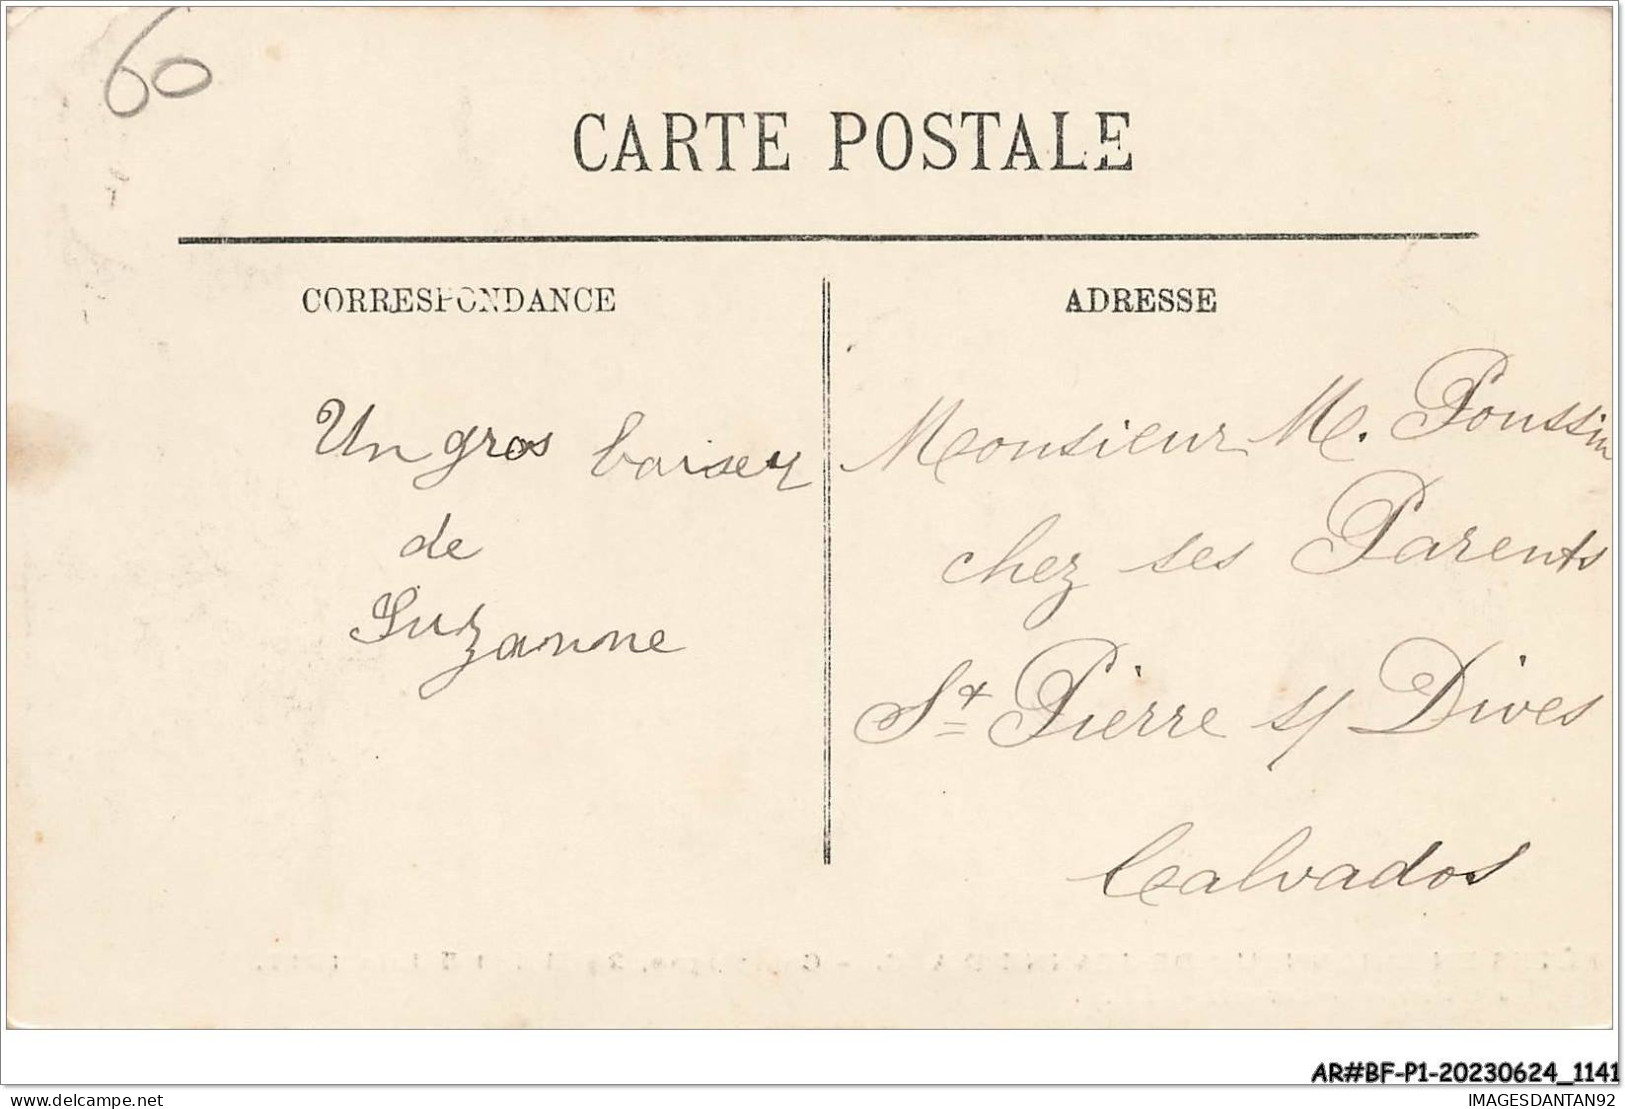 60
CARTE POSTALE
CORRESPONDANCE
ADRESSE
Un gros baiser
de
Suzanne
Monsieur M. Poussin
chez ses Parents
St Pierre s/ Dives
Calvados
AR#BF-P1-20230624_1141
delcampe.net
IMAGESDANTAN92